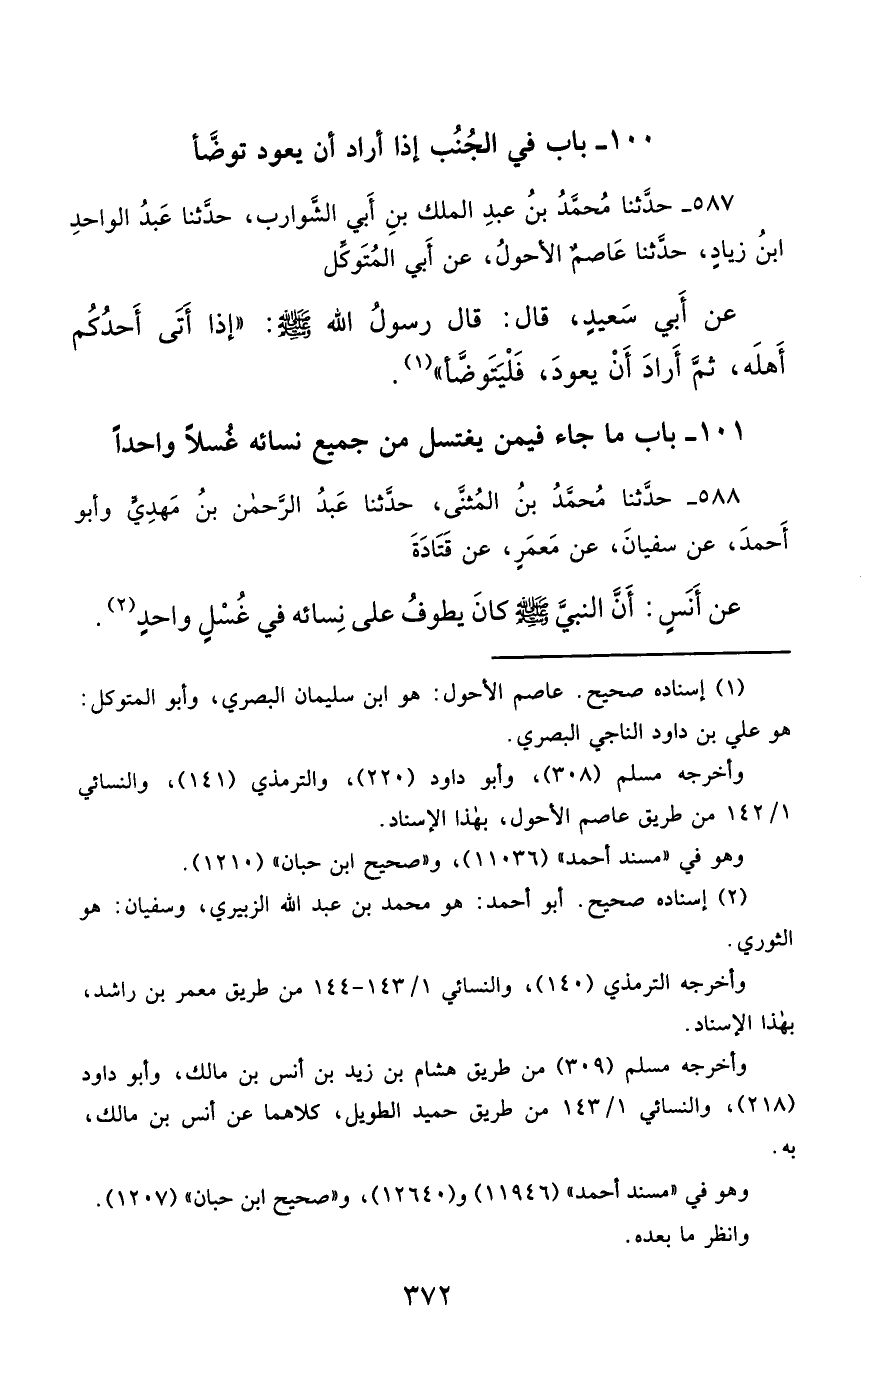 ١٠٠ـ باب في الجُنُب إذا أراد أن يعود توضَّأ
٥٨٧ـ حدَّثنا مُحمَّدُ بنُ عبدِ الملك بنِ أَبي الشَّوارب، حدَّثنا عَبدُ الواحدِ
ابنُ زيادٍ، حدَّثنا عَاصمٌ الأحولُ، عن أَبي المُتَوكِّل
عن أَبي سَعيدٍ، قال: قال رسولُ الله ﷺ: «إذا أَتَى أَحدُكُم
أَهلَه، ثمَّ أَرادَ أَنْ يعودَ، فَلْيَتَوضَّأ»(١).
١٠١ـ باب ما جاء فيمن يغتسل من جميع نسائه غُسلاً واحداً
٥٨٨ـ حدَّثنا مُحمَّدُ بنُ المُثنَّى، حدَّثنا عَبدُ الرَّحمٰن بنُ مَهدِيٍّ وأبو
أَحمدَ، عن سفيانَ، عن مَعمَرٍ، عن قَتَادَةَ
عن أَنَسٍ: أَنَّ النبيَّ ﷺ كانَ يطوفُ على نِسائه في غُسْلٍ واحدٍ(٢).
(١) إسناده صحيح. عاصم الأحول: هو ابن سليمان البصري، وأبو المتوكل:
هو علي بن داود الناجي البصري.
وأخرجه مسلم (٣٠٨)، وأبو داود (٢٢٠)، والترمذي (١٤١)، والنسائي
١/١٤٢ من طريق عاصم الأحول، بهٰذا الإسناد.
وهو في «مسند أحمد» (١١٠٣٦)، و«صحيح ابن حبان» (١٢١٠).
(٢) إسناده صحيح. أبو أحمد: هو محمد بن عبد الله الزبيري، وسفيان: هو
الثوري.
وأخرجه الترمذي (١٤٠)، والنسائي ١/١٤٣-١٤٤ من طريق معمر بن راشد،
بهٰذا الإسناد.
وأخرجه مسلم (٣٠٩) من طريق هشام بن زيد بن أنس بن مالك، وأبو داود
(٢١٨)، والنسائي ١/١٤٣ من طريق حميد الطويل، كلاهما عن أنس بن مالك،
به.
وهو في «مسند أحمد» (١١٩٤٦) و(١٢٦٤٠)، و«صحيح ابن حبان» (١٢٠٧).
وانظر ما بعده.
٣٧٢